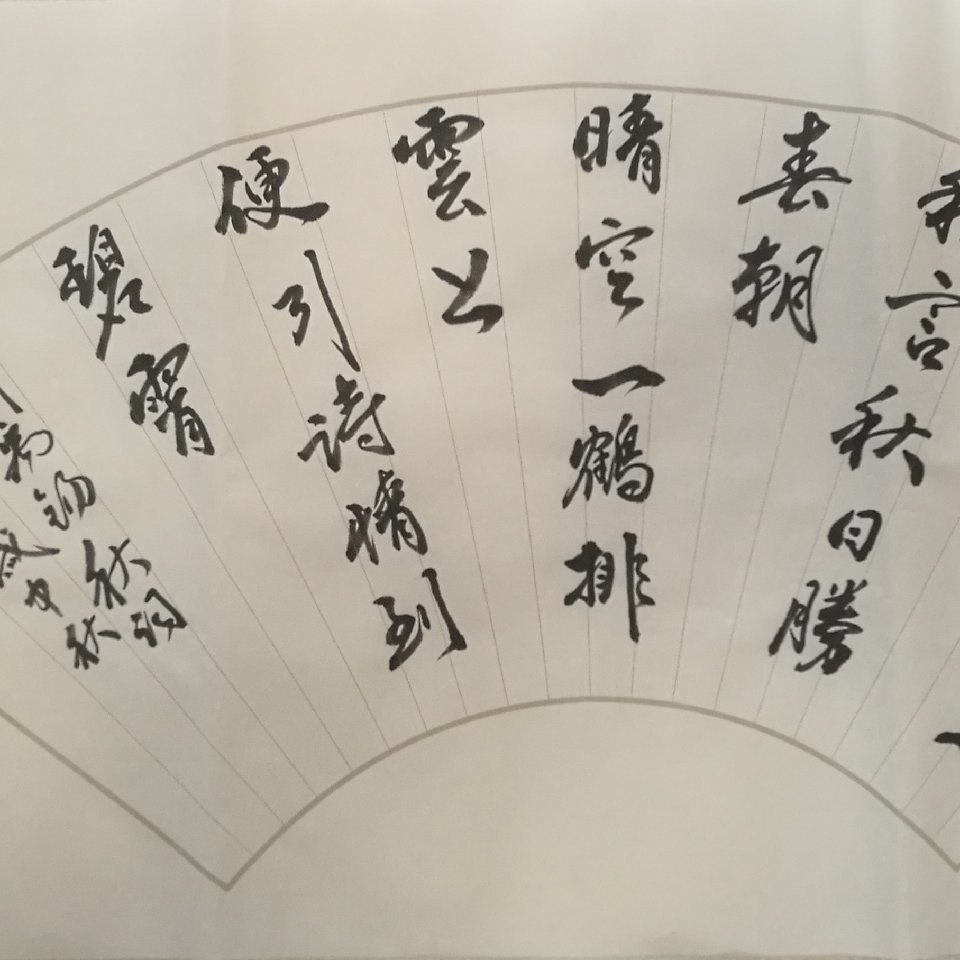 我言秋日勝
春朝
晴空一鶴排
雲上
便引詩情到
碧霄
禹锡秋词